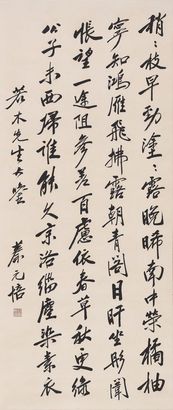 梢〻枝早勁塗〻露晚晞南中榮橘柚
寧知鴻雁飛拂露朝青閣日旰坐彤闈
悵望一途阻參差百慮依春草秋更綠
公子未西歸誰能久京洛緇塵染素衣
若木先生大鑒
蔡元培